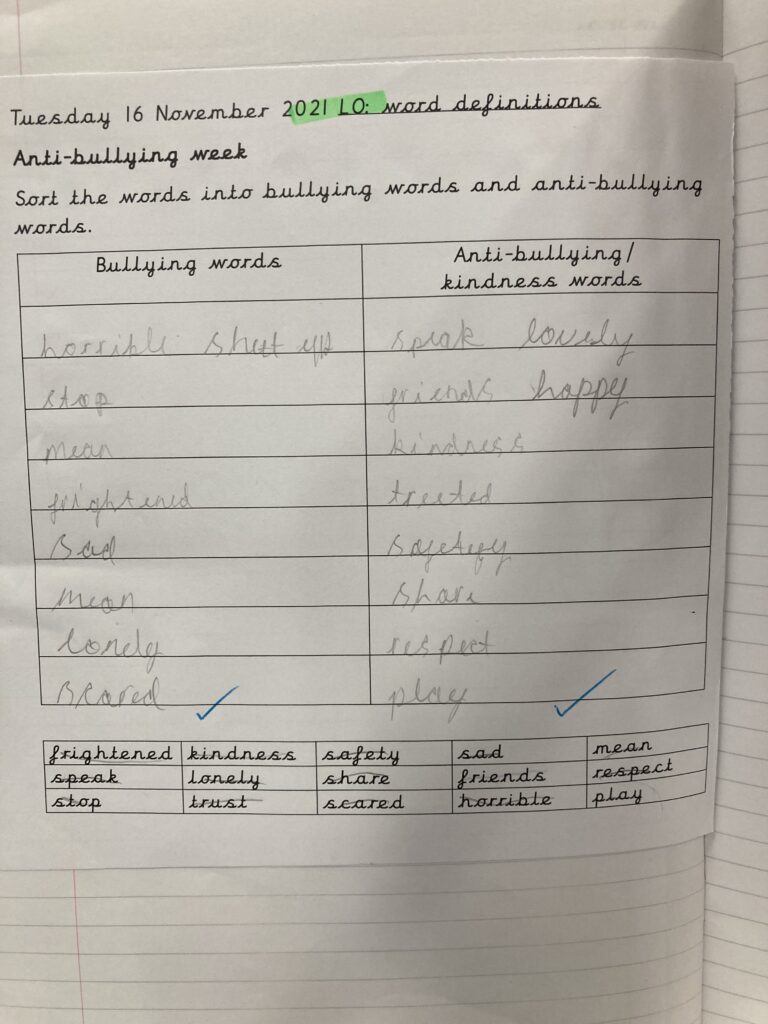 Tuesday 16 November 2021 LO: word definitions
Anti-bullying week
Sort the words into bullying words and anti-bullying
words.
Bullying words Anti-bullying/
kindness words
horrible shut up speak lovely
stop friends happy
mean kindness
frightened treeted
Sad safetyy
mean share
lonely respect
Scared play
frightened kindness safety sad mean
speak lonely share friends respect
stop trust scared horrible play